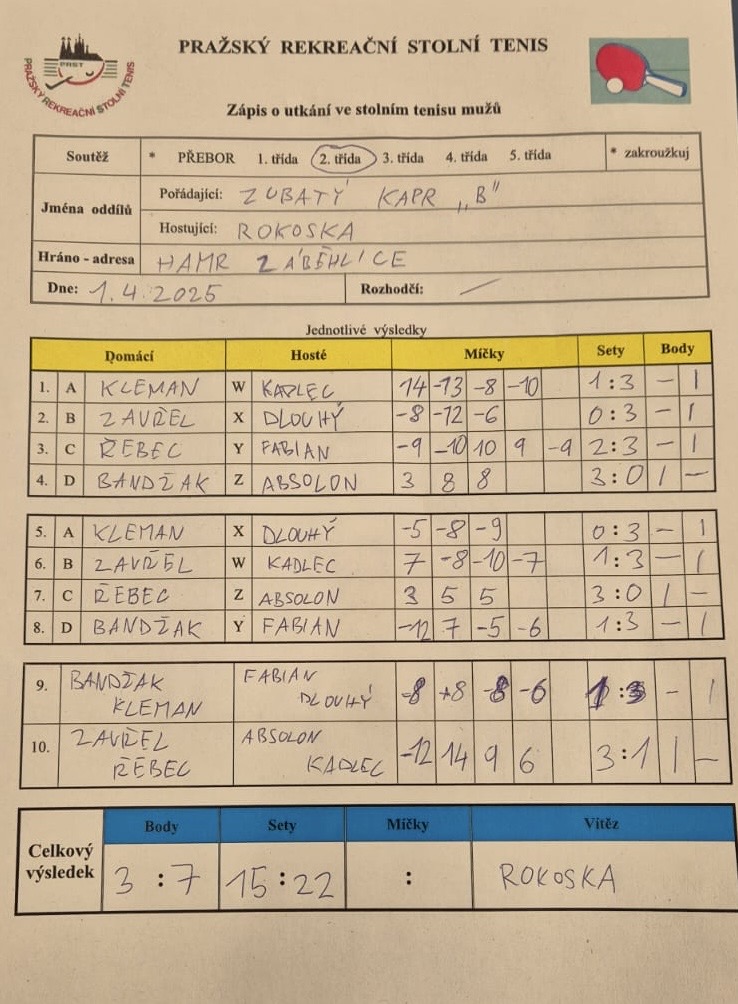 PRAŽSKÝ REKREAČNÍ STOLNÍ TENIS
PRST
PRAŽSKÝ REKREAČNÍ STOLNÍ TENIS
Zápis o utkání ve stolním tenisu mužů
Soutěž * PŘEBOR 1. třída 2. třída 3. třída 4. třída 5. třída * zakroužkuj
Jména oddílů
Pořádající: ZUBATÝ KAPR „B"
Hostující: ROKOSKA
Hráno - adresa HAMR ZÁBĚHLICE
Dne: 1.4.2025 Rozhodčí: —
Jednotlivé výsledky
Domácí Hosté Míčky Sety Body
1. A KLEMAN W KADLEC 14 -13 -8 -10 1:3 - 1
2. B ZAVŘEL X DLOUHÝ -8 -12 -6 0:3 - 1
3. C ŘEBEC Y FABIAN -9 -10 10 9 -9 2:3 - 1
4. D BANDŽAK Z ABSOLON 3 8 8 3:0 1 -
5. A KLEMAN X DLOUHÝ -5 -8 -9 0:3 - 1
6. B ZAVŘEL W KADLEC 7 -8 -10 -7 1:3 - 1
7. C ŘEBEC Z ABSOLON 3 5 5 3:0 1 -
8. D BANDŽAK Y FABIAN -12 7 -5 -6 1:3 - 1
9. BANDŽAK KLEMAN FABIAN DLOUHÝ -8 +8 -8 -6 1:3 - 1
10. ZAVŘEL ŘEBEC ABSOLON KADLEC -12 14 9 6 3:1 1 -
Celkový výsledek
Body Sety Míčky Vítěz
3 :7 15:22 : ROKOSKA